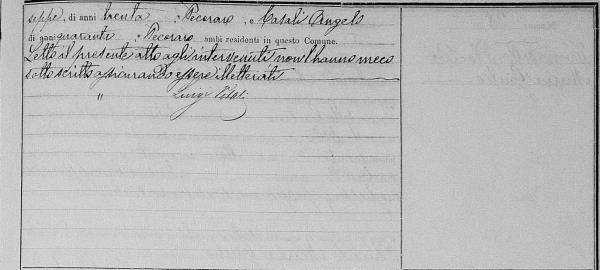 seppe, di anni trenta, Pecoraro, e Casali Angelo
di anni quaranta, Pecoraro, ambi residenti in questo Comune.
Letto il presente atto agli intervenuti non l'hanno meco
sottoscritto assicurando essere illetterati
" Luigi Vitali